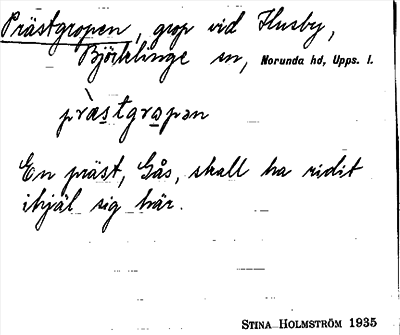 Prästgropen, grop vid Husby,
Björklinge sn, Norunda hd, Upps. l.
præ̀stgrapən
En präst, Gås, skall ha ridit
ihjäl sig här.
STINA HOLMSTRÖM 1935